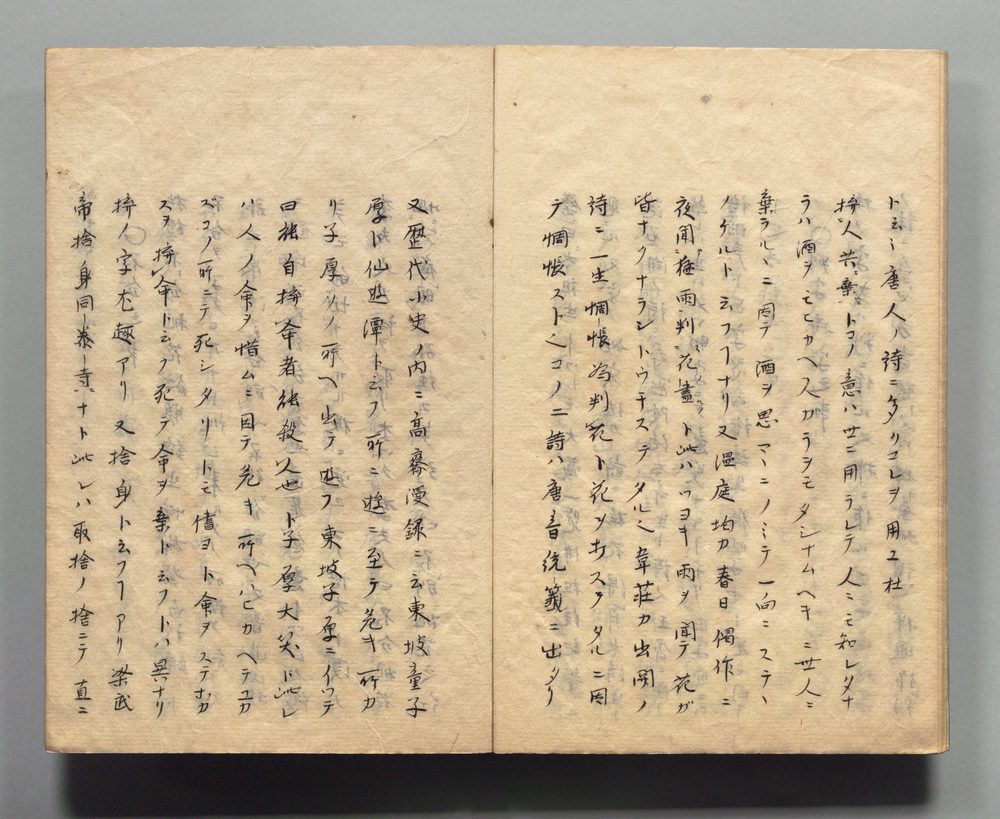 ト云ハ唐人詩ニ多クコレヲ用ユ杜
ラハ酒ヲモヒカヘスガラヲモタシナムヘキニ世人ニ
棄ラルヽニ因テ酒ヲ思マヽニノミテ一向ニステヽ
ノケルト云フーナリ又温庭均カ春日偶作ニ
夜聞猛雨判花盡ト此ハツヨキ雨ヲ聞テ花ガ
皆ナクナラントウチステタルヽ韋荘カ出関ノ
詩ニ一生惆悵為判花ト花ヲホステタルニ因
テ惆悵ストヘコノ二詩ハ唐音統籤ニ出タリ
又歴代小史ノ内ニ高齋漫録ニ云東坡童子
厚ト仙遊潭ト云フ所ニ遊ニ至テ危キ所カ
リ子厚ソノ所ヘ出テ遊フ東坡子厚ニイツテ
曰能自捹命者能殺人也ト子厚大笑ト此レ
ハ人ノ命ヲ惜ムニ因テ危キ所ヘハヒカヘテユカ
ズコノ所ニテ死シタリトモ儘ヨト命ヲステホカ
スヲ捹命ト云フ死テ命ヲ棄ト云フトハ異ナリ
捹ノ字尤趣アリ又捨身ト云フーアリ梁武
帝捨身同泰寺ナト此レハ取捨ノ捨ニテ直ニ